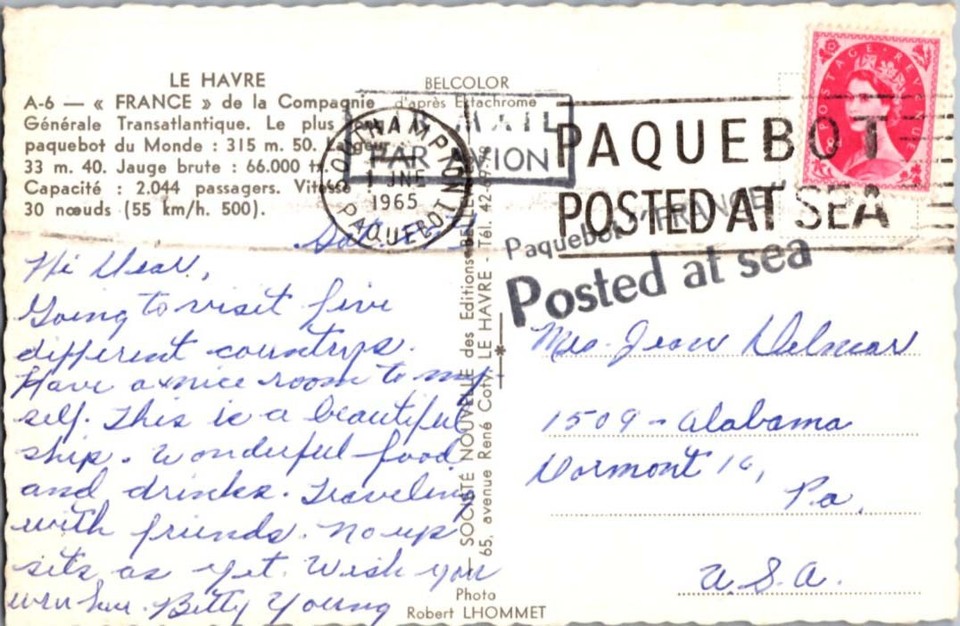 LE HAVRE
A-6 — « FRANCE » de la Compagnie
Générale Transatlantique. Le plus
paquebot du Monde : 315 m. 50. Largeur
33 m. 40. Jauge brute : 66.000 tx.
Capacité : 2.044 passagers. Vitesse
30 nœuds (55 km/h. 500).
BELCOLOR
d'après Ektachrome
MAIL
PAR AVION
1 JNE
1965
PAQUEBOT
PAQUEBOT
POSTED AT SEA
POSTAGE REVENUE
Paquebot "FRANCE"
Posted at sea
Hi Dear,
Going to visit five
different countrys.
Have a nice room to my-
self. This is a beautiful
ship. Wonderful food
and drinks. Traveling
with friends. No up
sits as yet. Wish you
were here. Betty Young
SOCIÉTÉ NOUVELLE des Editions BELLE
65, avenue René Coty LE HAVRE - Tél. 42
Mrs. Jean Delmar
1509 - Alabama
Dormont 16,
Pa.
U.S.A.
Photo
Robert LHOMMET